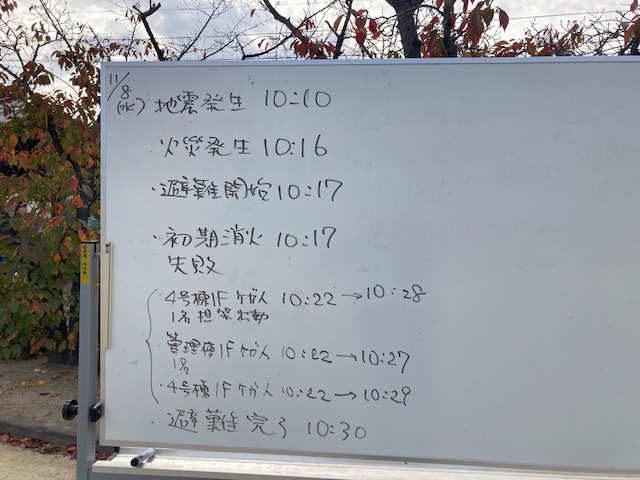 11/8(水)
地震発生 10:10
火災発生 10:16
・避難開始 10:17
・初期消火 10:17
失敗
・4号棟1F ケガ人 10:22→10:28
1名 担架出動
・管理棟1F ケガ人 10:22→10:27
1名
・4号棟1F ケガ人 10:22→10:29
・避難完了 10:30